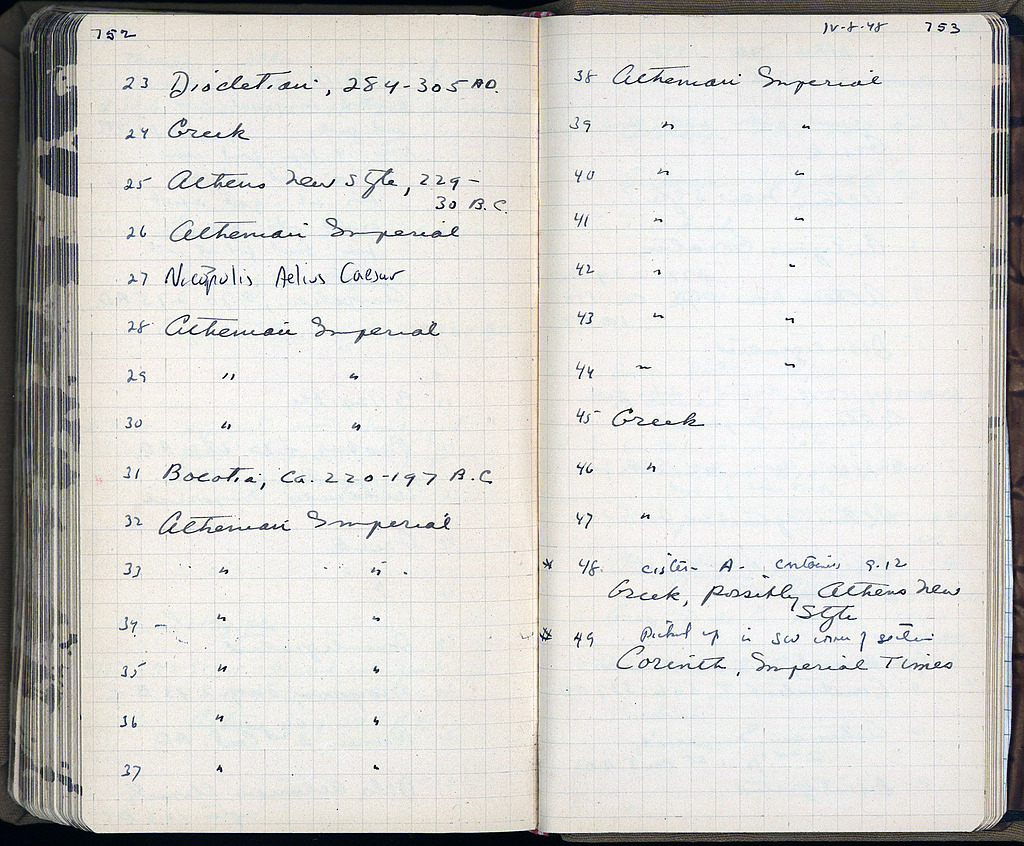 752
23 Diocletian, 284-305 AD.
24 Greek
25 Athens New Style, 229-
30 B.C.
26 Athenian Imperial
27 Nicopolis Aelius Caesar
28 Athenian Imperial
29 " "
30 " "
31 Boeotia, Ca. 220-197 B.C
32 Athenian Imperial
33 " "
34 - " "
35 " "
36 " "
37 " "
IV-8-48 753
38 Athenian Imperial
39 " "
40 " "
41 " "
42 " "
43 " "
44 " "
45 Greek
46 "
47 "
* 48 cistern A- container 9.12
Greek, possibly Athens New
Style
* 49 Picked up in SW corner of section
Corinth, Imperial Times